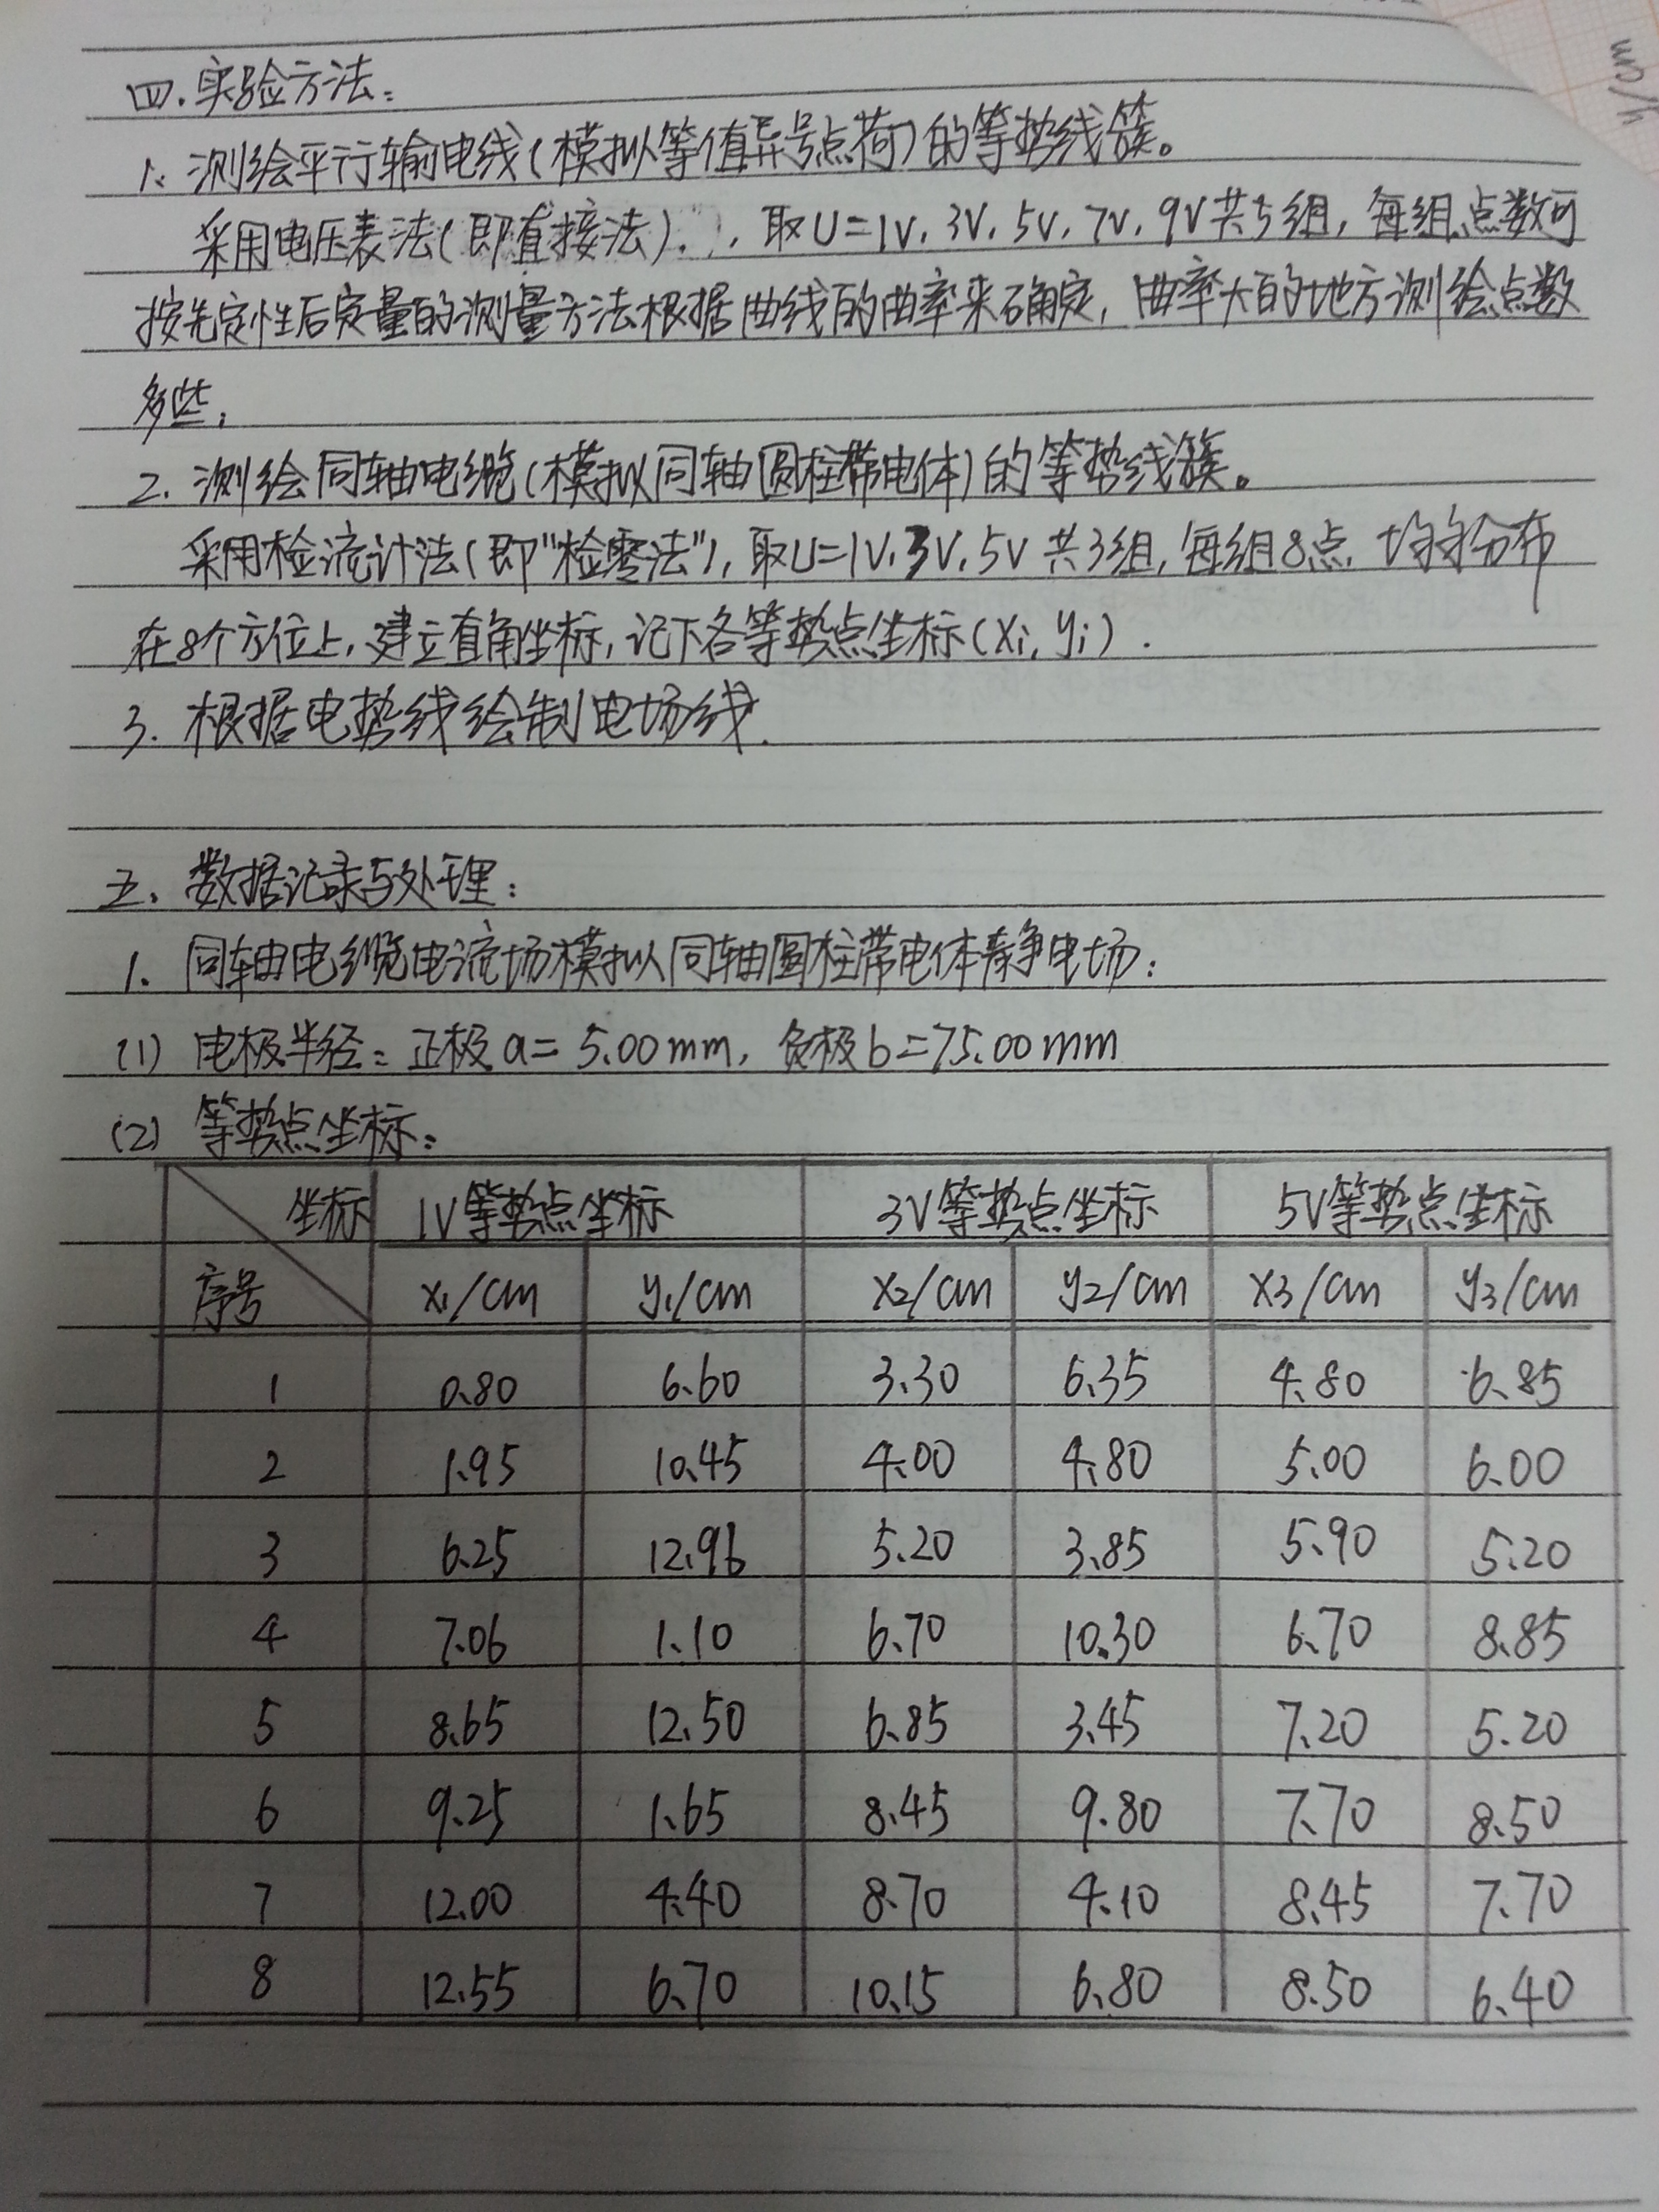 y/cm
四.实验方法:
1.测绘平行输电线(模拟等值异号点荷)的等势线簇。
采用电压表法(即直接法).,取U=1V.3V.5V.7V.9V共5组,每组点数可
按先定性后定量的测量方法根据曲线的曲率来确定,曲率大的地方测绘点数
多些;
2.测绘同轴电缆(模拟同轴圆柱带电体)的等势线簇。
采用检流计法(即"检零法"),取U=1V.3V.5V共3组,每组8点.均匀分布
在8个方位上,建立直角坐标,记下各等势点坐标(xi,yi).
3.根据电势线绘制电场线.
五、数据记录与处理:
1.同轴电缆电流场模拟同轴圆柱带电体静电场:
(1)电极半径:正极a=5.00mm,负极b=75.00mm
(2)等势点坐标:
坐标 1V等势点坐标 3V等势点坐标 5V等势点坐标
序号 x1/cm y1/cm x2/cm y2/cm x3/cm y3/cm
1 0.80 6.60 3.30 6.35 4.80 6.85
2 1.95 10.45 4.00 4.80 5.00 6.00
3 6.25 12.96 5.20 3.85 5.90 5.20
4 7.06 1.10 6.70 10.30 6.70 8.85
5 8.65 12.50 6.85 3.45 7.20 5.20
6 9.25 1.65 8.45 9.80 7.70 8.50
7 12.00 4.40 8.70 4.10 8.45 7.70
8 12.55 6.70 10.15 6.80 8.50 6.40